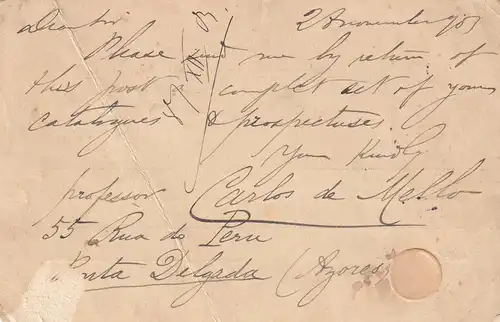 Dear Sir 2 November 903
Please send me by return of
this post complet set of yours
catalogues & prospectuses.
Your Kindly
professor Carlos de Mello
55 Rua do Peru
Ponta Delgada (Azores)